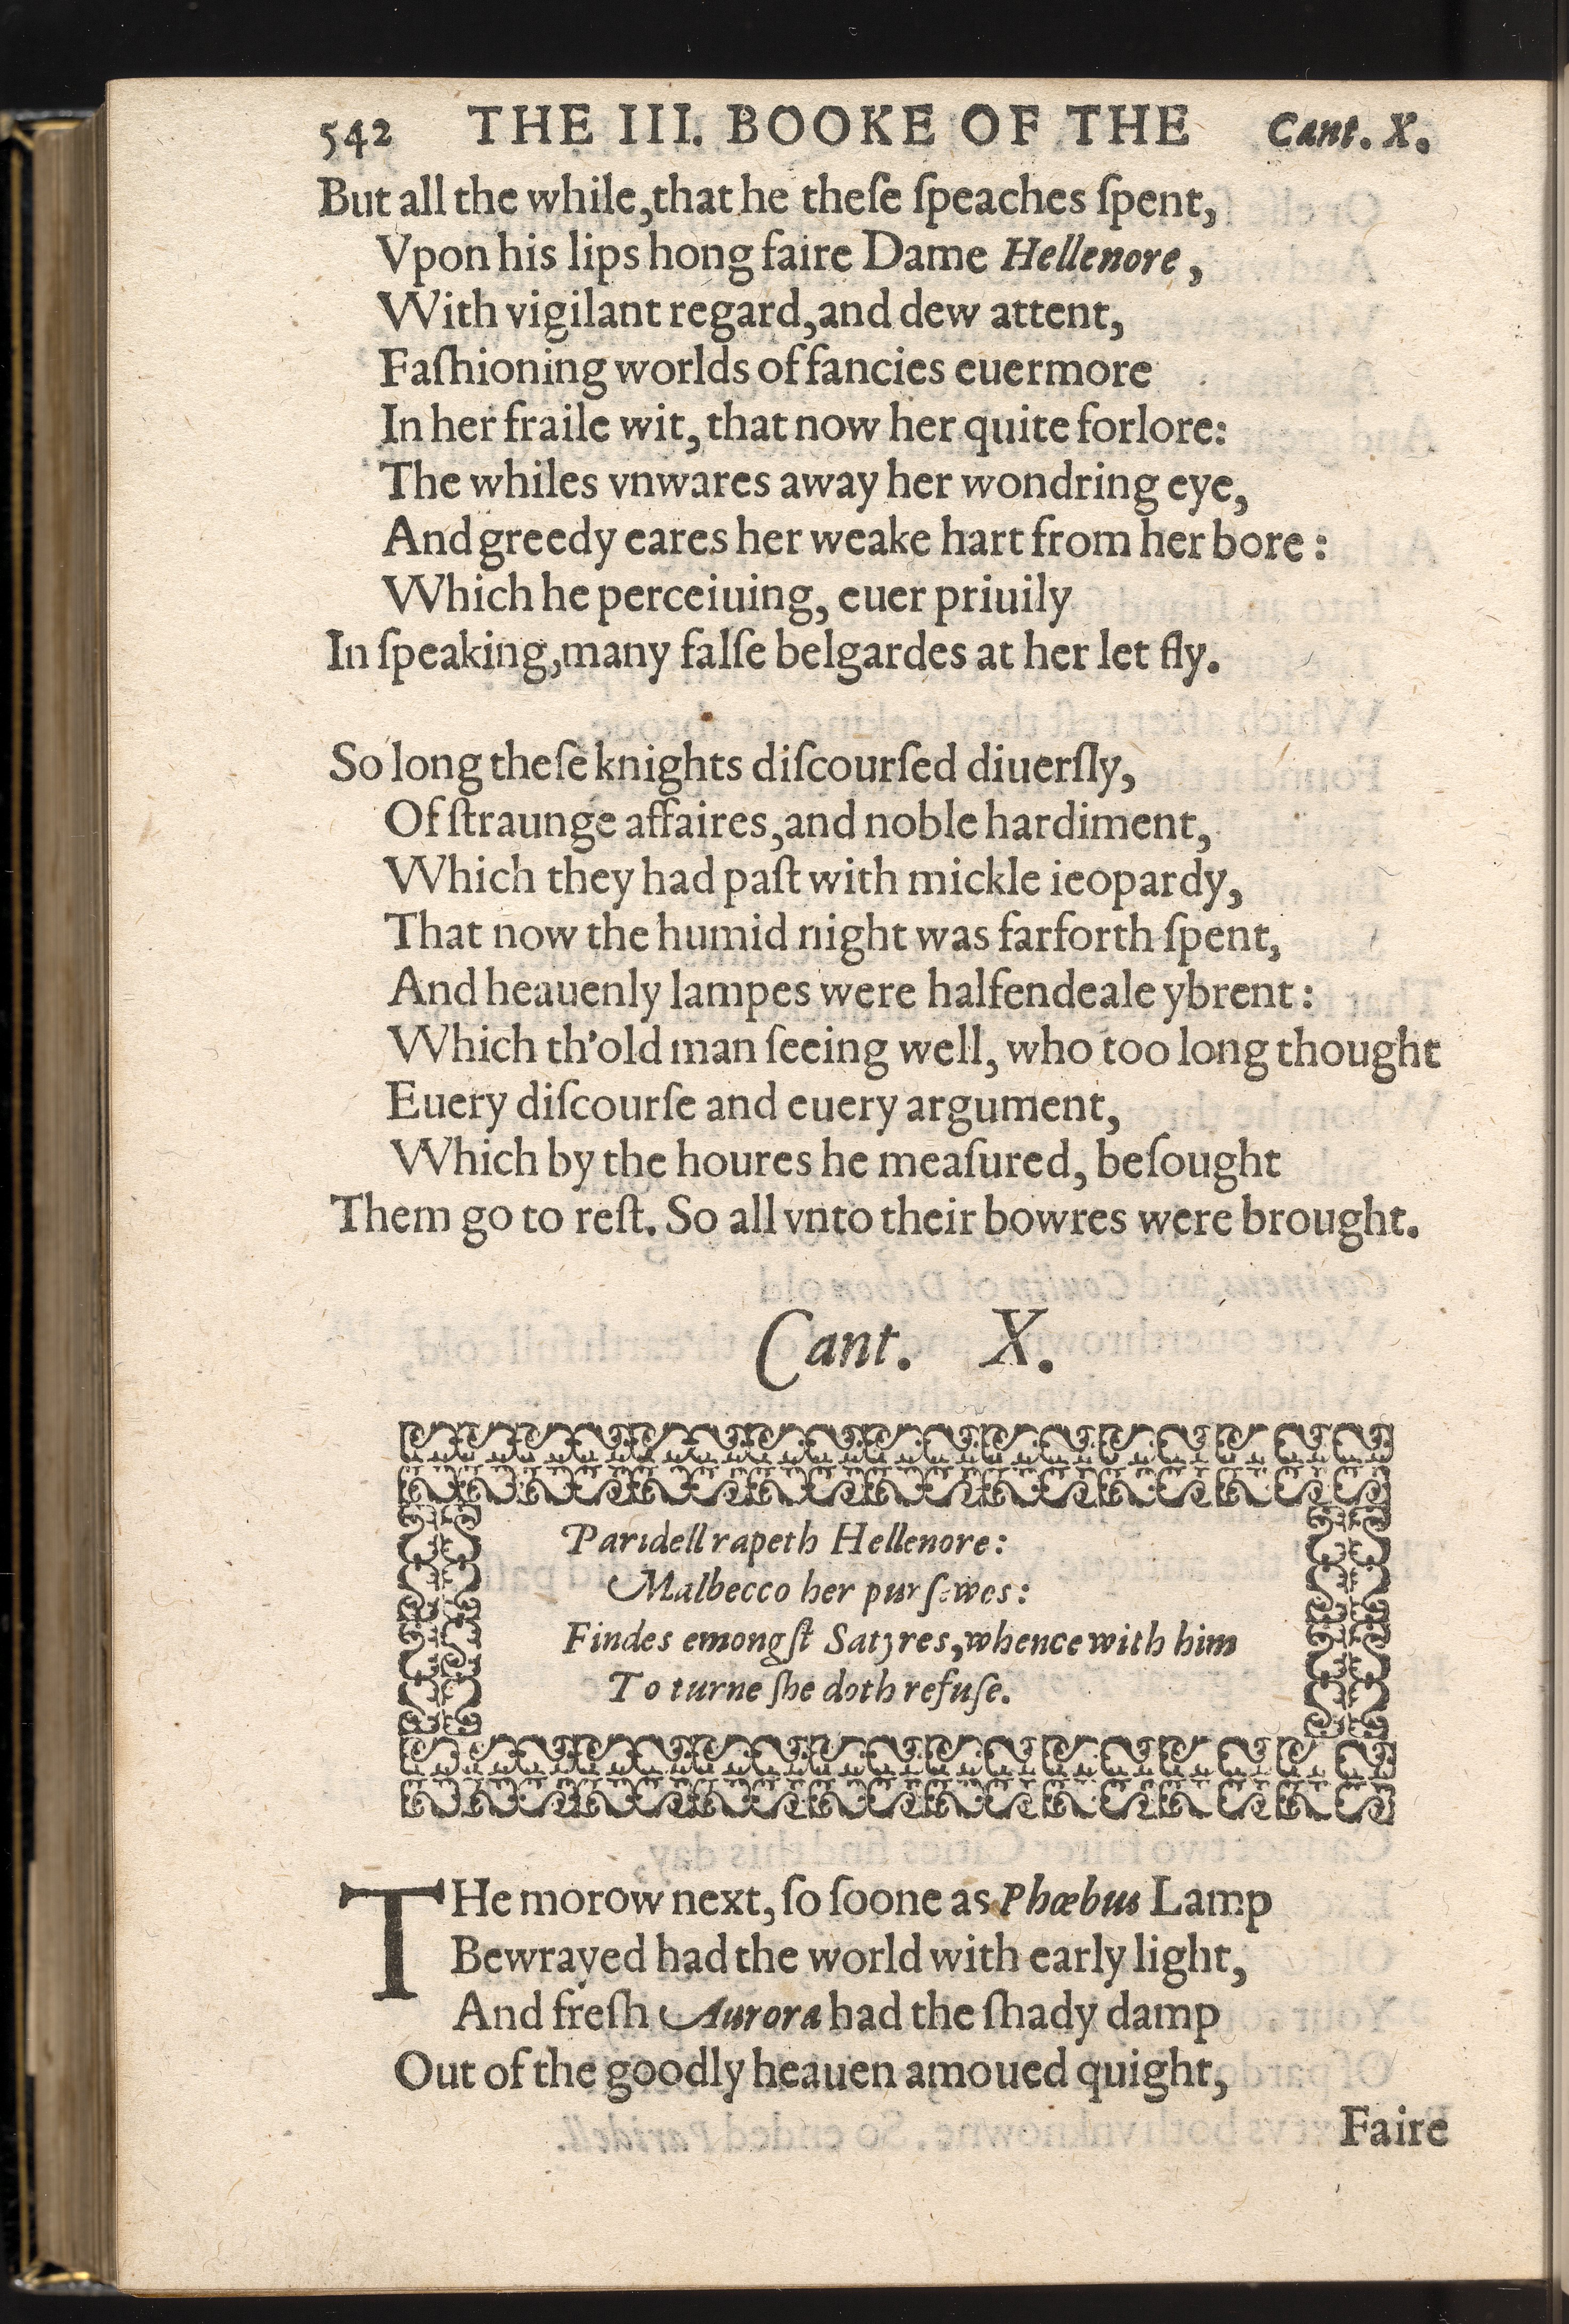 542 THE III. BOOKE OF THE Cant. X.
But all the while, that he theſe ſpeaches ſpent,
Vpon his lips hong faire Dame Hellenore,
With vigilant regard, and dew attent,
Faſhioning worlds of fancies euermore
In her fraile wit, that now her quite forlore:
The whiles vnwares away her wondring eye,
And greedy eares her weake hart from her bore:
Which he perceiuing, euer priuily
In ſpeaking, many falſe belgardes at her let fly.
So long theſe knights diſcourſed diuerſly,
Of ſtraunge affaires, and noble hardiment,
Which they had paſt with mickle ieopardy,
That now the humid night was farforth ſpent,
And heauenly lampes were halfendeale ybrent:
Which th'old man ſeeing well, who too long thought
Euery diſcourſe and euery argument,
Which by the houres he meaſured, beſought
Them go to reſt. So all vnto their bowres were brought.
Cant. X.
Paridell rapeth Hellenore:
Malbecco her purſewes:
Findes emongſt Satyres, whence with him
To turne ſhe doth refuſe.
THe morow next, ſo ſoone as Phœbus Lamp
Bewrayed had the world with early light,
And freſh Aurora had the ſhady damp
Out of the goodly heauen amoued quight,
Faire